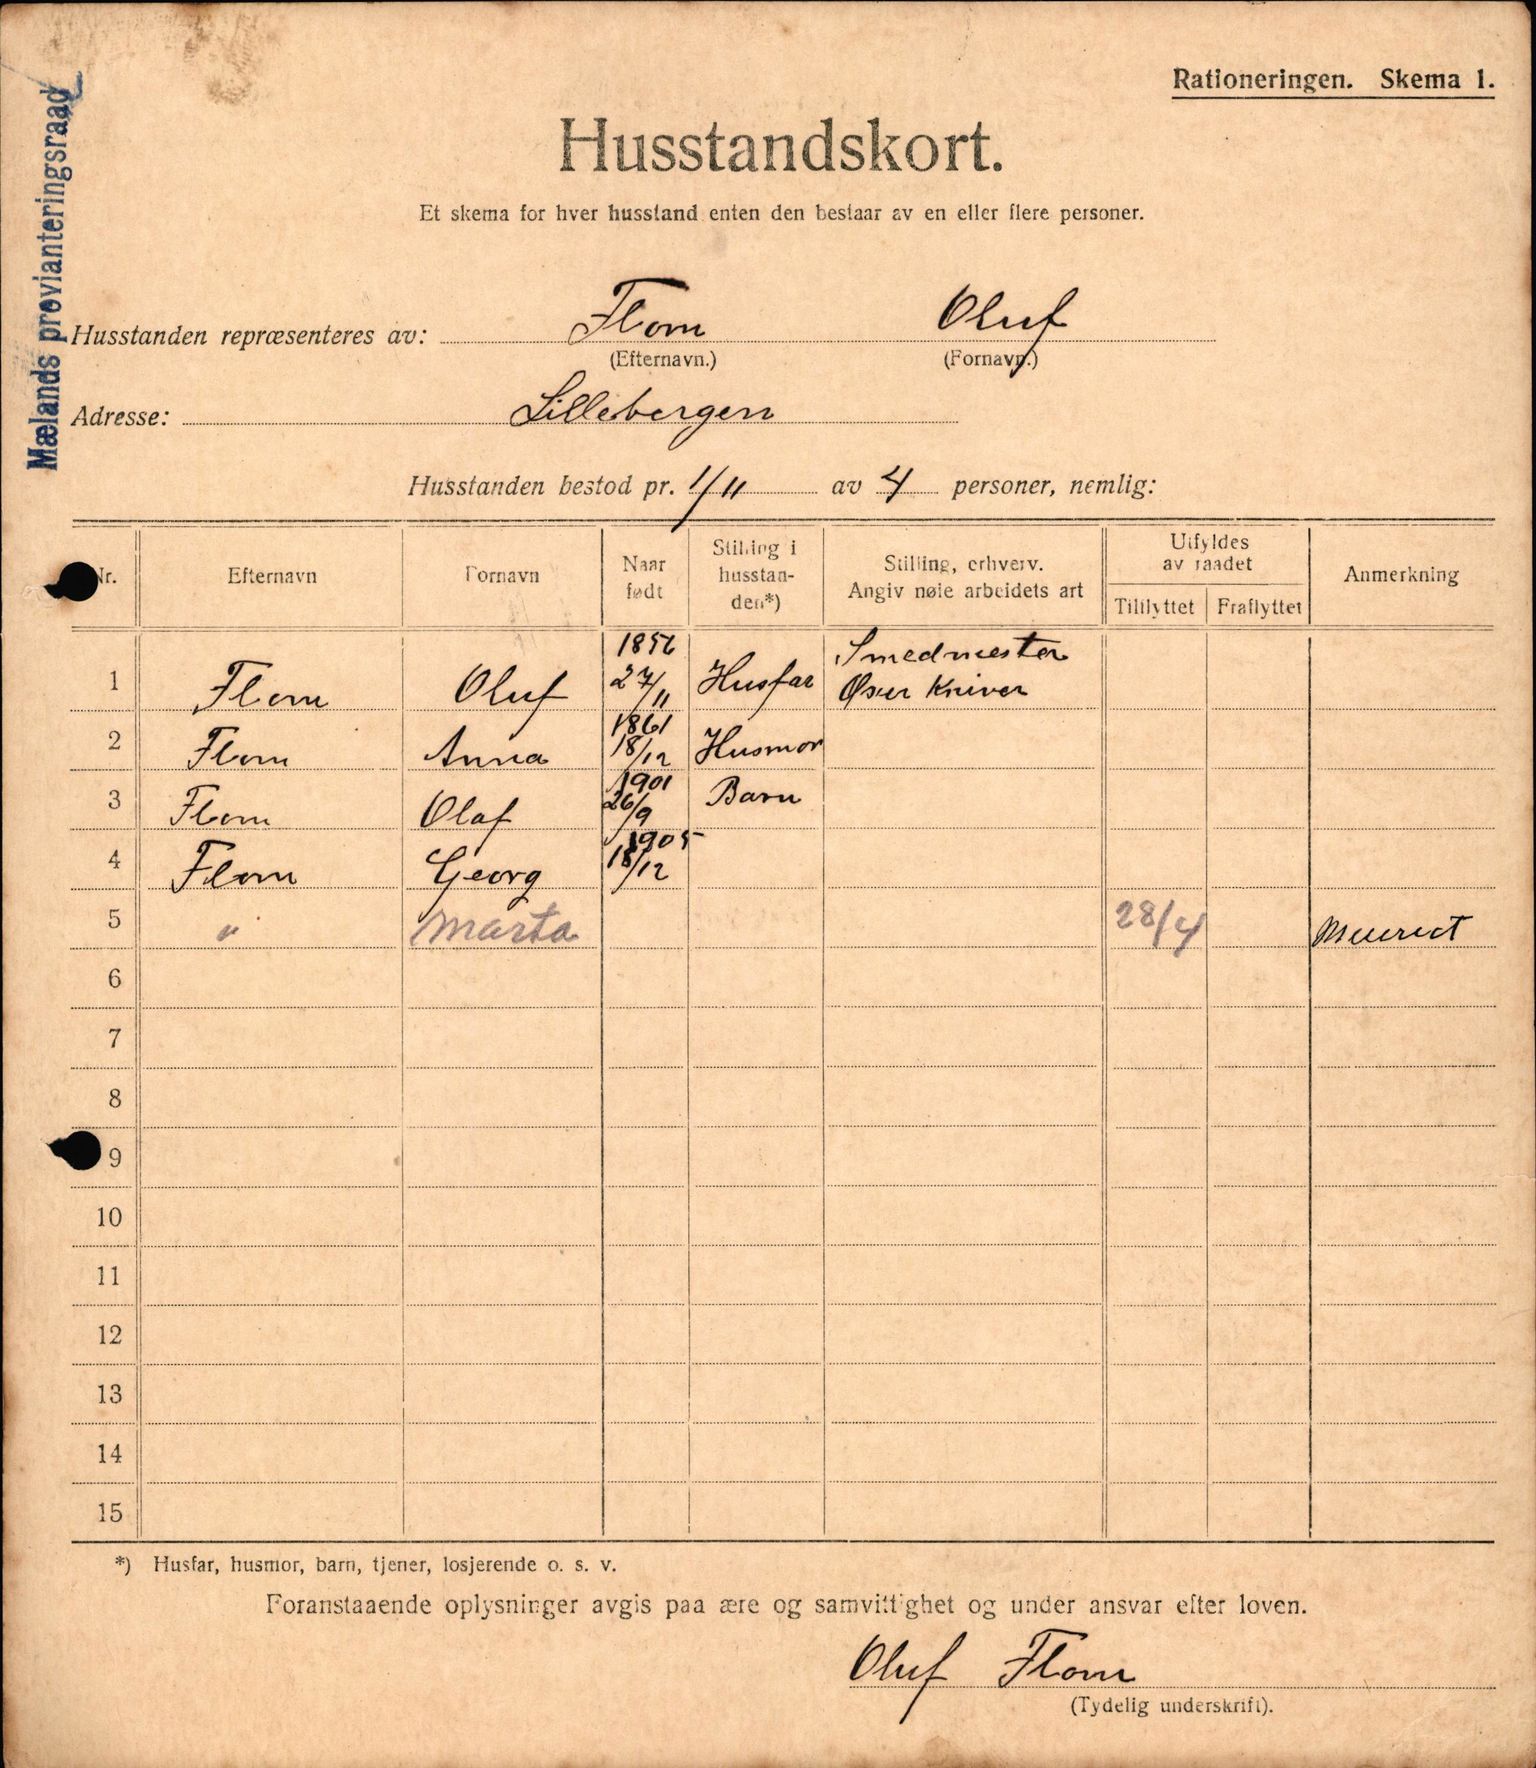 Mælands provianteringsraad
Rationeringen. Skema 1.
Husstandskort.
Et skema for hver husstand enten den bestaar av en eller flere personer.
Husstanden repræsenteres av: Flom Oluf
(Efternavn.) (Fornavn.)
Adresse: Lillebergen
Husstanden bestod pr. 1/11 av 4 personer, nemlig:
Nr. Efternavn Fornavn Naar født Stilling i husstanden*) Stilling, erhverv. Angiv nøie arbeidets art Utfyldes av raadet Tilflyttet Fraflyttet Anmerkning
1 Flom Oluf 27/11 Husfar Smedmester
2 Flom Anna 1861 18/12 Husmor
3 Flom Olaf 1901 26/9 Barn
4 Flom Georg 1905 18/12
5 " Marta 28/4
6
7
8
9
10
11
12
13
14
15
*) Husfar, husmor, barn, tjener, losjerende o. s. v.
Foranstaaende oplysninger avgis paa ære og samvittighet og under ansvar efter loven.
Oluf Flom
(Tydelig underskrift).